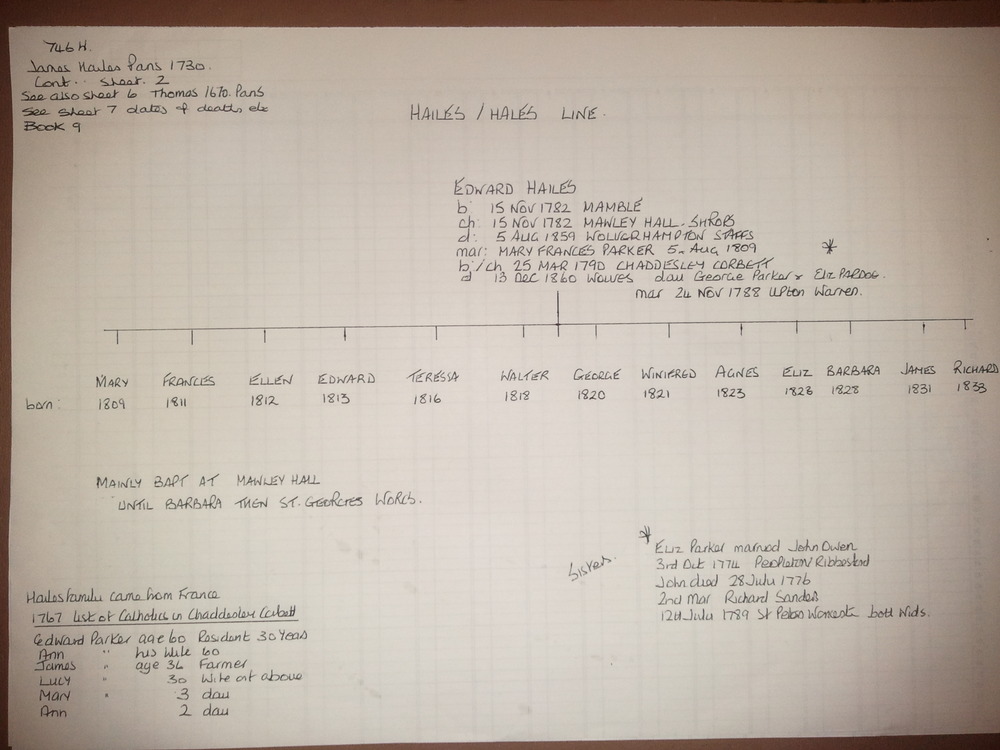 746 H.
James Hailes Pans 1730.
Cont.. Sheet. 2
See also sheet 6 Thomas 1670. Pans
See Sheet 7 dates of death, etc
Book 9
HAILES / HALES LINE.
EDWARD HAILES
b: 15 NOV 1782 MAMBLE
ch: 15 NOV 1782 MAWLEY HALL. SHROPS
d: 5 AUG 1859 WOLVERHAMPTON STAFFS
mar: MARY FRANCES PARKER 5. Aug 1809 *
b:/ch 25 MAR 1790 CHADDESLEY CORBETT
d 13 DEC 1860 WOLVES dau George Parker & Eliz PARDOE.
mar 24 NOV 1788 Upton Warren.
MARY FRANCES ELLEN EDWARD TERESSA WALTER GEORGE WINIFRED AGNES ELIZ BARBARA JAMES RICHARD
born: 1809 1811 1812 1813 1816 1818 1820 1821 1823 1826 1828 1831 1833
MAINLY BAPT AT MAWLEY HALL
UNTIL BARBARA THEN ST. GEORGES WORCS.
Sister.
* Eliz Parker married John Owen
3rd Oct 1774 Peopleton Ribbesford
John died 28 July 1776
2nd Mar Richard Sanders
12th July 1789 St Peters Worcester both Wids.
Hailes family came from France
1767 List of Catholics in Chaddesley Corbett
Edward Parker age 60 Resident 30 Years
Ann " his wife 60
James " age 34 Farmer
Lucy " 30 Wife of above
Mary " 3 dau
Ann 2 dau